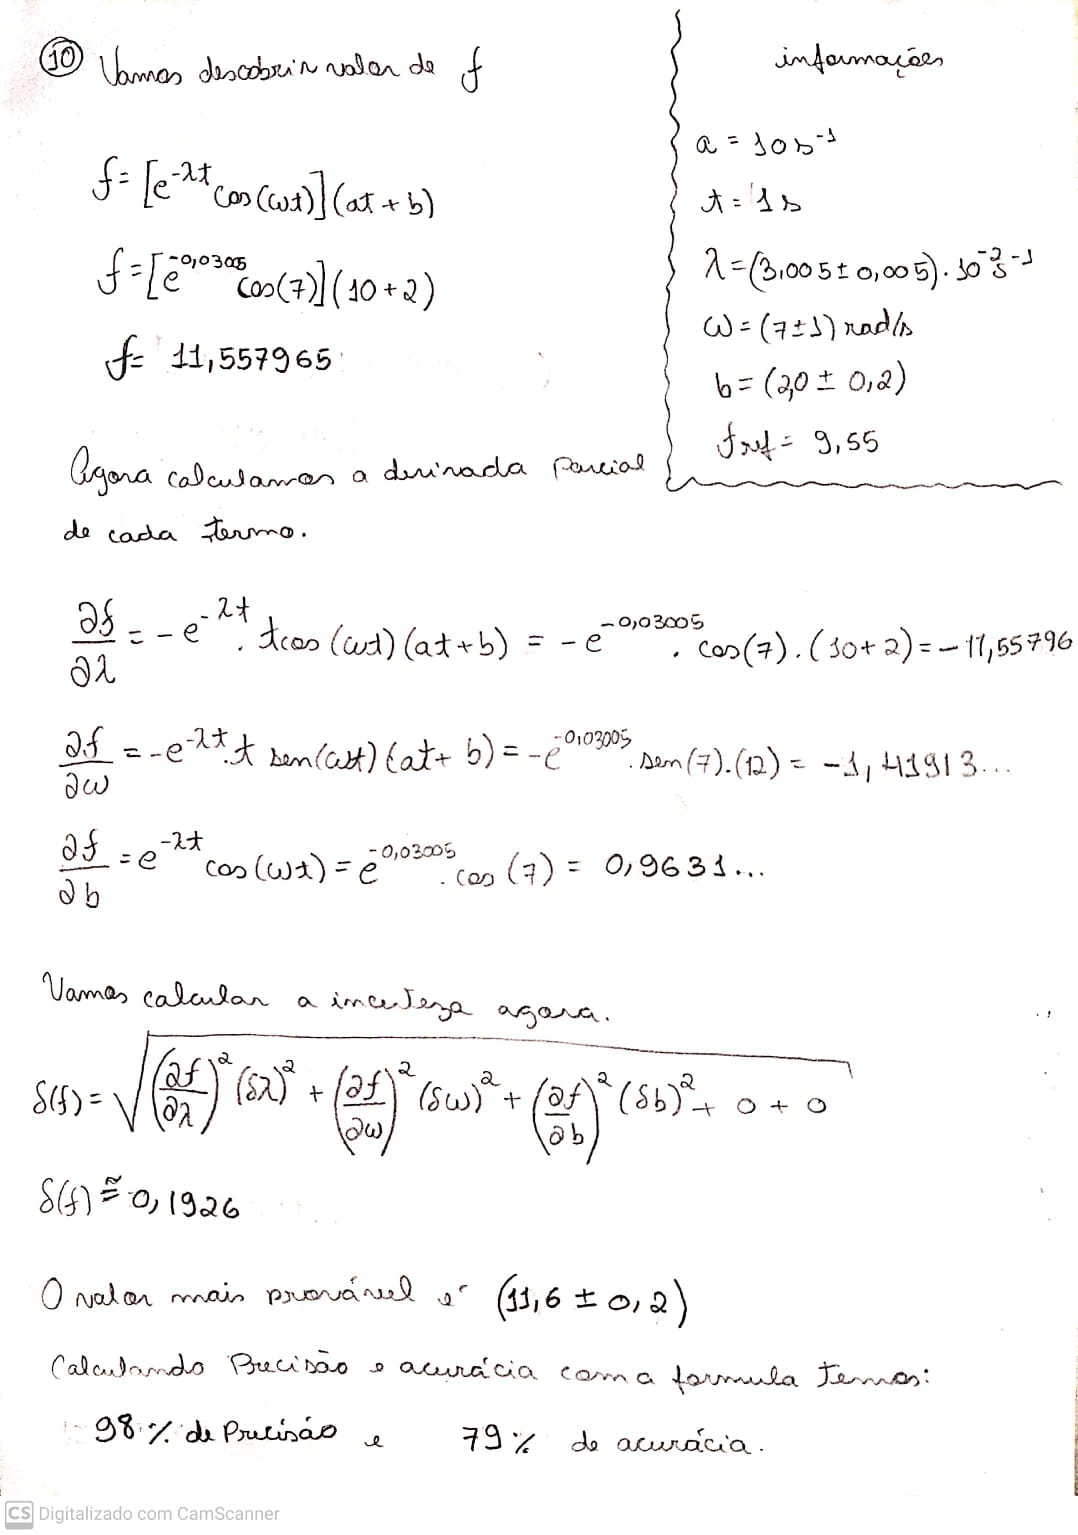 10 Vamos descobrir valor de f
f = [e^-λt cos(ωt)](at + b)
f = [e^-0,03005 cos(7)](10 + 2)
f = 11,557965
informações
a = 10 s^-1
t = 1 s
λ = (3,005 ± 0,005) . 10^-2 s^-1
ω = (7 ± 1) rad/s
b = (2,0 ± 0,2)
fref = 9,55
Agora calculamos a derivada parcial
de cada termo.
∂f/∂λ = - e^-λt . t cos(ωt)(at + b) = - e^-0,03005 . cos(7) . (10 + 2) = - 11,55796
∂f/∂ω = - e^-λt . t sen(ωt)(at + b) = - e^-0,03005 . sen(7).(12) = -1,41913...
∂f/∂b = e^-λt cos(ωt) = e^-0,03005 . cos(7) = 0,9631...
Vamos calcular a incerteza agora.
δ(f) = √((∂f/∂λ)² (δλ)² + (∂f/∂ω)² (δω)² + (∂f/∂b)² (δb)² + 0 + 0)
δ(f) ≅ 0,1926
O valor mais provável é (11,6 ± 0,2)
Calculando Precisão e acurácia com a formula temos:
98 % de Precisão e 79 % de acurácia.
CS Digitalizado com CamScanner